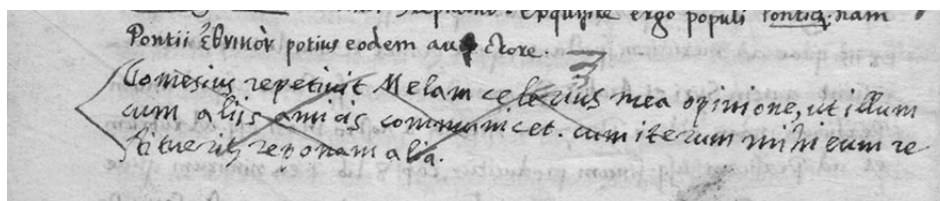 Exquisite ergo populi Pontici. nam
Pontii ἐθνικὸν potius eodem auctore.
Gomesius repetiuit Melam celerius mea opinione, ut illum
cum alijs amicis communicet. cum iterum mihi eum re
stituerit, reponam alia.